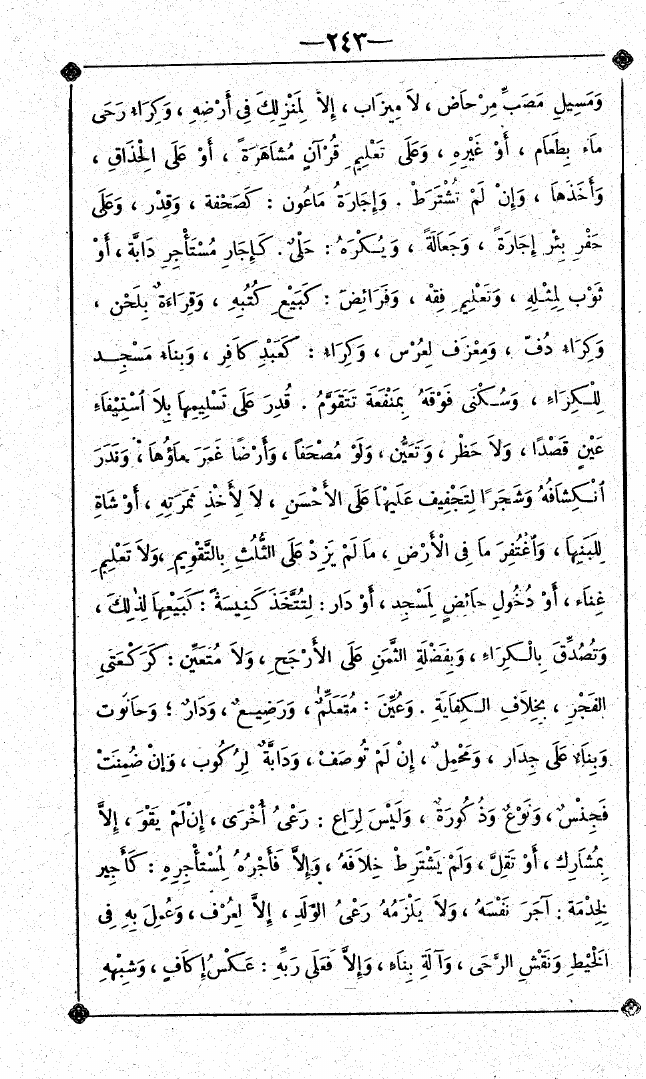 —٢٤٣—
وَمَسِيلِ مَصَبِّ مِرْحَاضٍ ، لاَ مِيزَابٍ ، إلاَّ لِمَنْزِلِكَ فِي أَرْضِهِ ، وَكِرَاءُ رَحَى
مَاءٍ بِطَعَامٍ ، أَوْ غَيْرِهِ ، وَعَلَى تَعْلِيمِ قُرْآنٍ مُشَاهَرَةً ، أَوْ عَلَى الْحِذَاقِ ،
وَأَخَذَهَا ، وَإِنْ لَمْ تُشْتَرَطْ . وَإِجَارَةُ مَاعُونٍ : كَصَحْفَةٍ ، وَقِدْرٍ ، وَعَلَى
حَفْرِ بِئْرٍ إِجَارَةً ، وَجَعَالَةً ، وَيُكْرَهُ : حَلْىٌ . كَإِيجَارِ مُسْتَأْجِرِ دَابَّةٍ ، أَوْ
ثَوْبٍ لِمِثْلِهِ ، وَتَعْلِيمِ فِقْهٍ ، وَفَرَائِضَ : كَبَيْعِ كُتُبِهِ ، وَقِرَاءَةٌ بِلَحْنٍ ،
وَكِرَاءُ دُفٍّ ، وَمِعْزَفٍ لِعُرْسٍ ، وَكِرَاءُ : كَعَبْدٍ كَافِرٍ ، وَبِنَاءُ مَسْجِدٍ
لِلْكِرَاءِ ، وَسُكْنَى فَوْقَهُ بِمَنْفَعَةٍ تَتَقَوَّمُ . قُدِرَ عَلَى تَسْلِيمِهَا بِلاَ ٱسْتِيْفَاءِ
عَيْنٍ قَصْدًا ، وَلاَ حَظْرٍ ، وَتَعَيُّنٍ ، وَلَوْ مُصْحَفًا ، وَأَرْضًا غَمَرَ مَاؤُهَا ، وَنَدَرَ
ٱنْكِشَافُهُ وَشَجَرًا لِتَجْفِيفٍ عَلَيْهَا عَلَى الأَحْسَنِ ، لاَ لِأَخْذِ ثَمَرَتِهِ ، أَوْ شَاةٍ
لِلَبَنِهَا ، وَٱغْتُفِرَ مَا فِى الْأَرْضِ ، مَا لَمْ يَزِدْ عَلَى الثُّلُثِ بِالتَّقْوِيمِ ، وَلاَ تَعْلِيمِ
غِنَاءٍ ، أَوْ دُخُولِ حَائِضٍ لِمَسْجِدٍ ، أَوْ دَارٍ : لِتُتَّخَذَ كَنِيسَةً : كَبَيْعِهَا لِذٰلِكَ ،
وَتُصُدِّقَ بِالْكِرَاءِ ، وَبِفَضْلَةِ الثَّمَنِ عَلَى الأَرْجَحِ ، وَلاَ مُتَعَيِّنٍ : كَرَكْعَتَىِ
الفَجْرِ ، بِخِلاَفِ الْكِفَايَةِ . وَعُيِّنَ : مُتَعَلِّمٌ ، وَرَضِيعٌ ، وَدَارٌ ؛ وَحَانُوتٌ
وَبِنَاءٌ عَلَى جِدَارٍ ، وَمَحْمِلٌ ، إِنْ لَمْ تُوصَفْ ، وَدَابَّةٌ لِرُكُوبٍ ، وَإِنْ ضُمِنَتْ
فَجِنْسٌ ، وَنَوْعٌ وَذُكُورَةٌ ، وَلَيْسَ لِرَاعٍ : رَعْىُ أُخْرَى ، إِنْ لَمْ يَقْوَ ، إِلاَّ
بِمُشَارِكٍ ، أَوْ تَقِلَّ ، وَلَمْ يَشْتَرِطْ خِلاَفَهُ ، وَإِلاَّ فَأَجْرُهُ لِمُسْتَأْجِرِهِ : كَأَجِيرٍ
لِخِدْمَةٍ : آجَرَ نَفْسَهُ ، وَلاَ يَلْزَمُهُ رَعْىُ الوَلَدِ ، إِلاَّ لِعُرْفٍ ، وَعُمِلَ بِهِ فِى
الْخَيْطِ وَنَقْشِ الرَّحَى ، وَآلَةِ بِنَاءٍ ، وَإِلاَّ فَعَلَى رَبِّهِ : عَكْسُ إِكَافٍ ، وَشِبْهِهِ